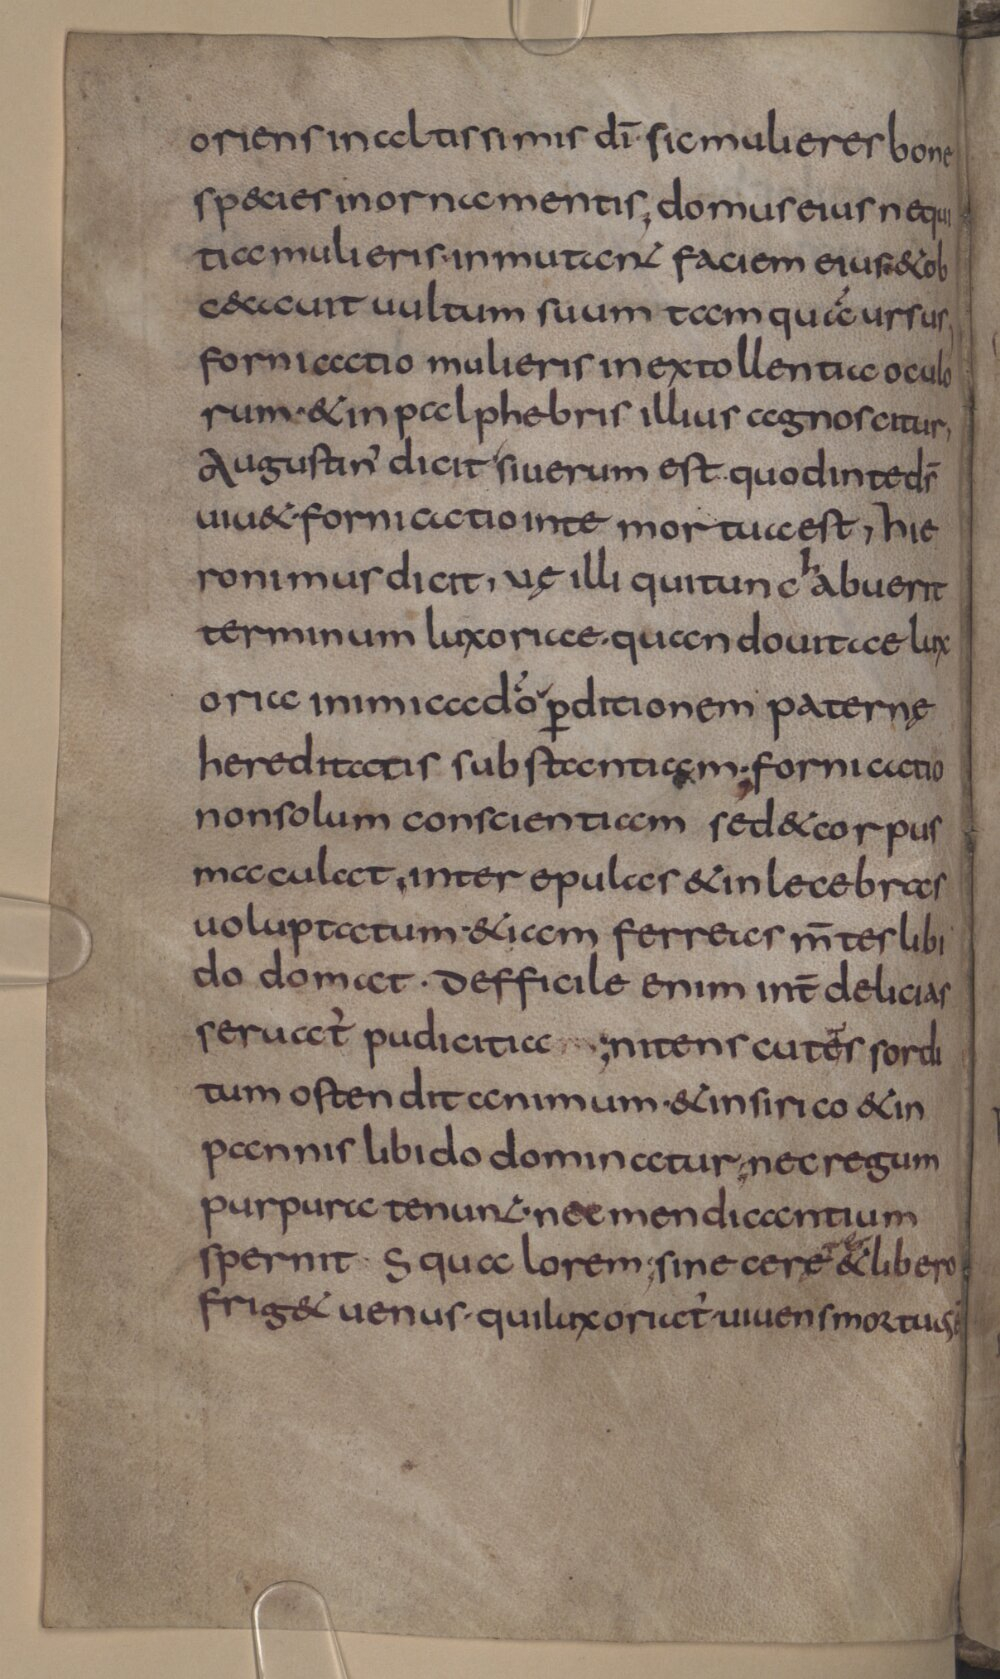 oriens in altissimis dī · sic mulieres bone
sp&cies in ornamentis, domus eius nequi
tia mulieris · inmutant faciem eius · & ob
c&cauit uultum suum tamquā ursus,
fornicatio mulieris in extollentia oculo
rum · & in palphebris illius agnoscitur,
Augustin' dicit si uerum est · quod in te d̄s
uiu& · fornicatio in te mortua est, hie
ronimus dicit, uę illi qui tunc habuerit
terminum luxoriae · quando uitae lux
oria inimica dō ꝑditionem paternę
hereditatis substantiam · fornicatio
non solum conscientiam sed & corpus
maculat, inter epulas & inlecebras
uoluptatum · & iam ferreas m̄tes libi
do domat · Defficile enim int̄ delicias
seruat' pudicitia ; nitens cutes sordi
tum ostendit animum · & in sirico & in
pannis libido dominatur; nec regum
purpura tenunt · nec mendicantium
spernit S qualorem; sine cere & libero
frig& uenus · qui luxoriat' · uiuens mortuus ē